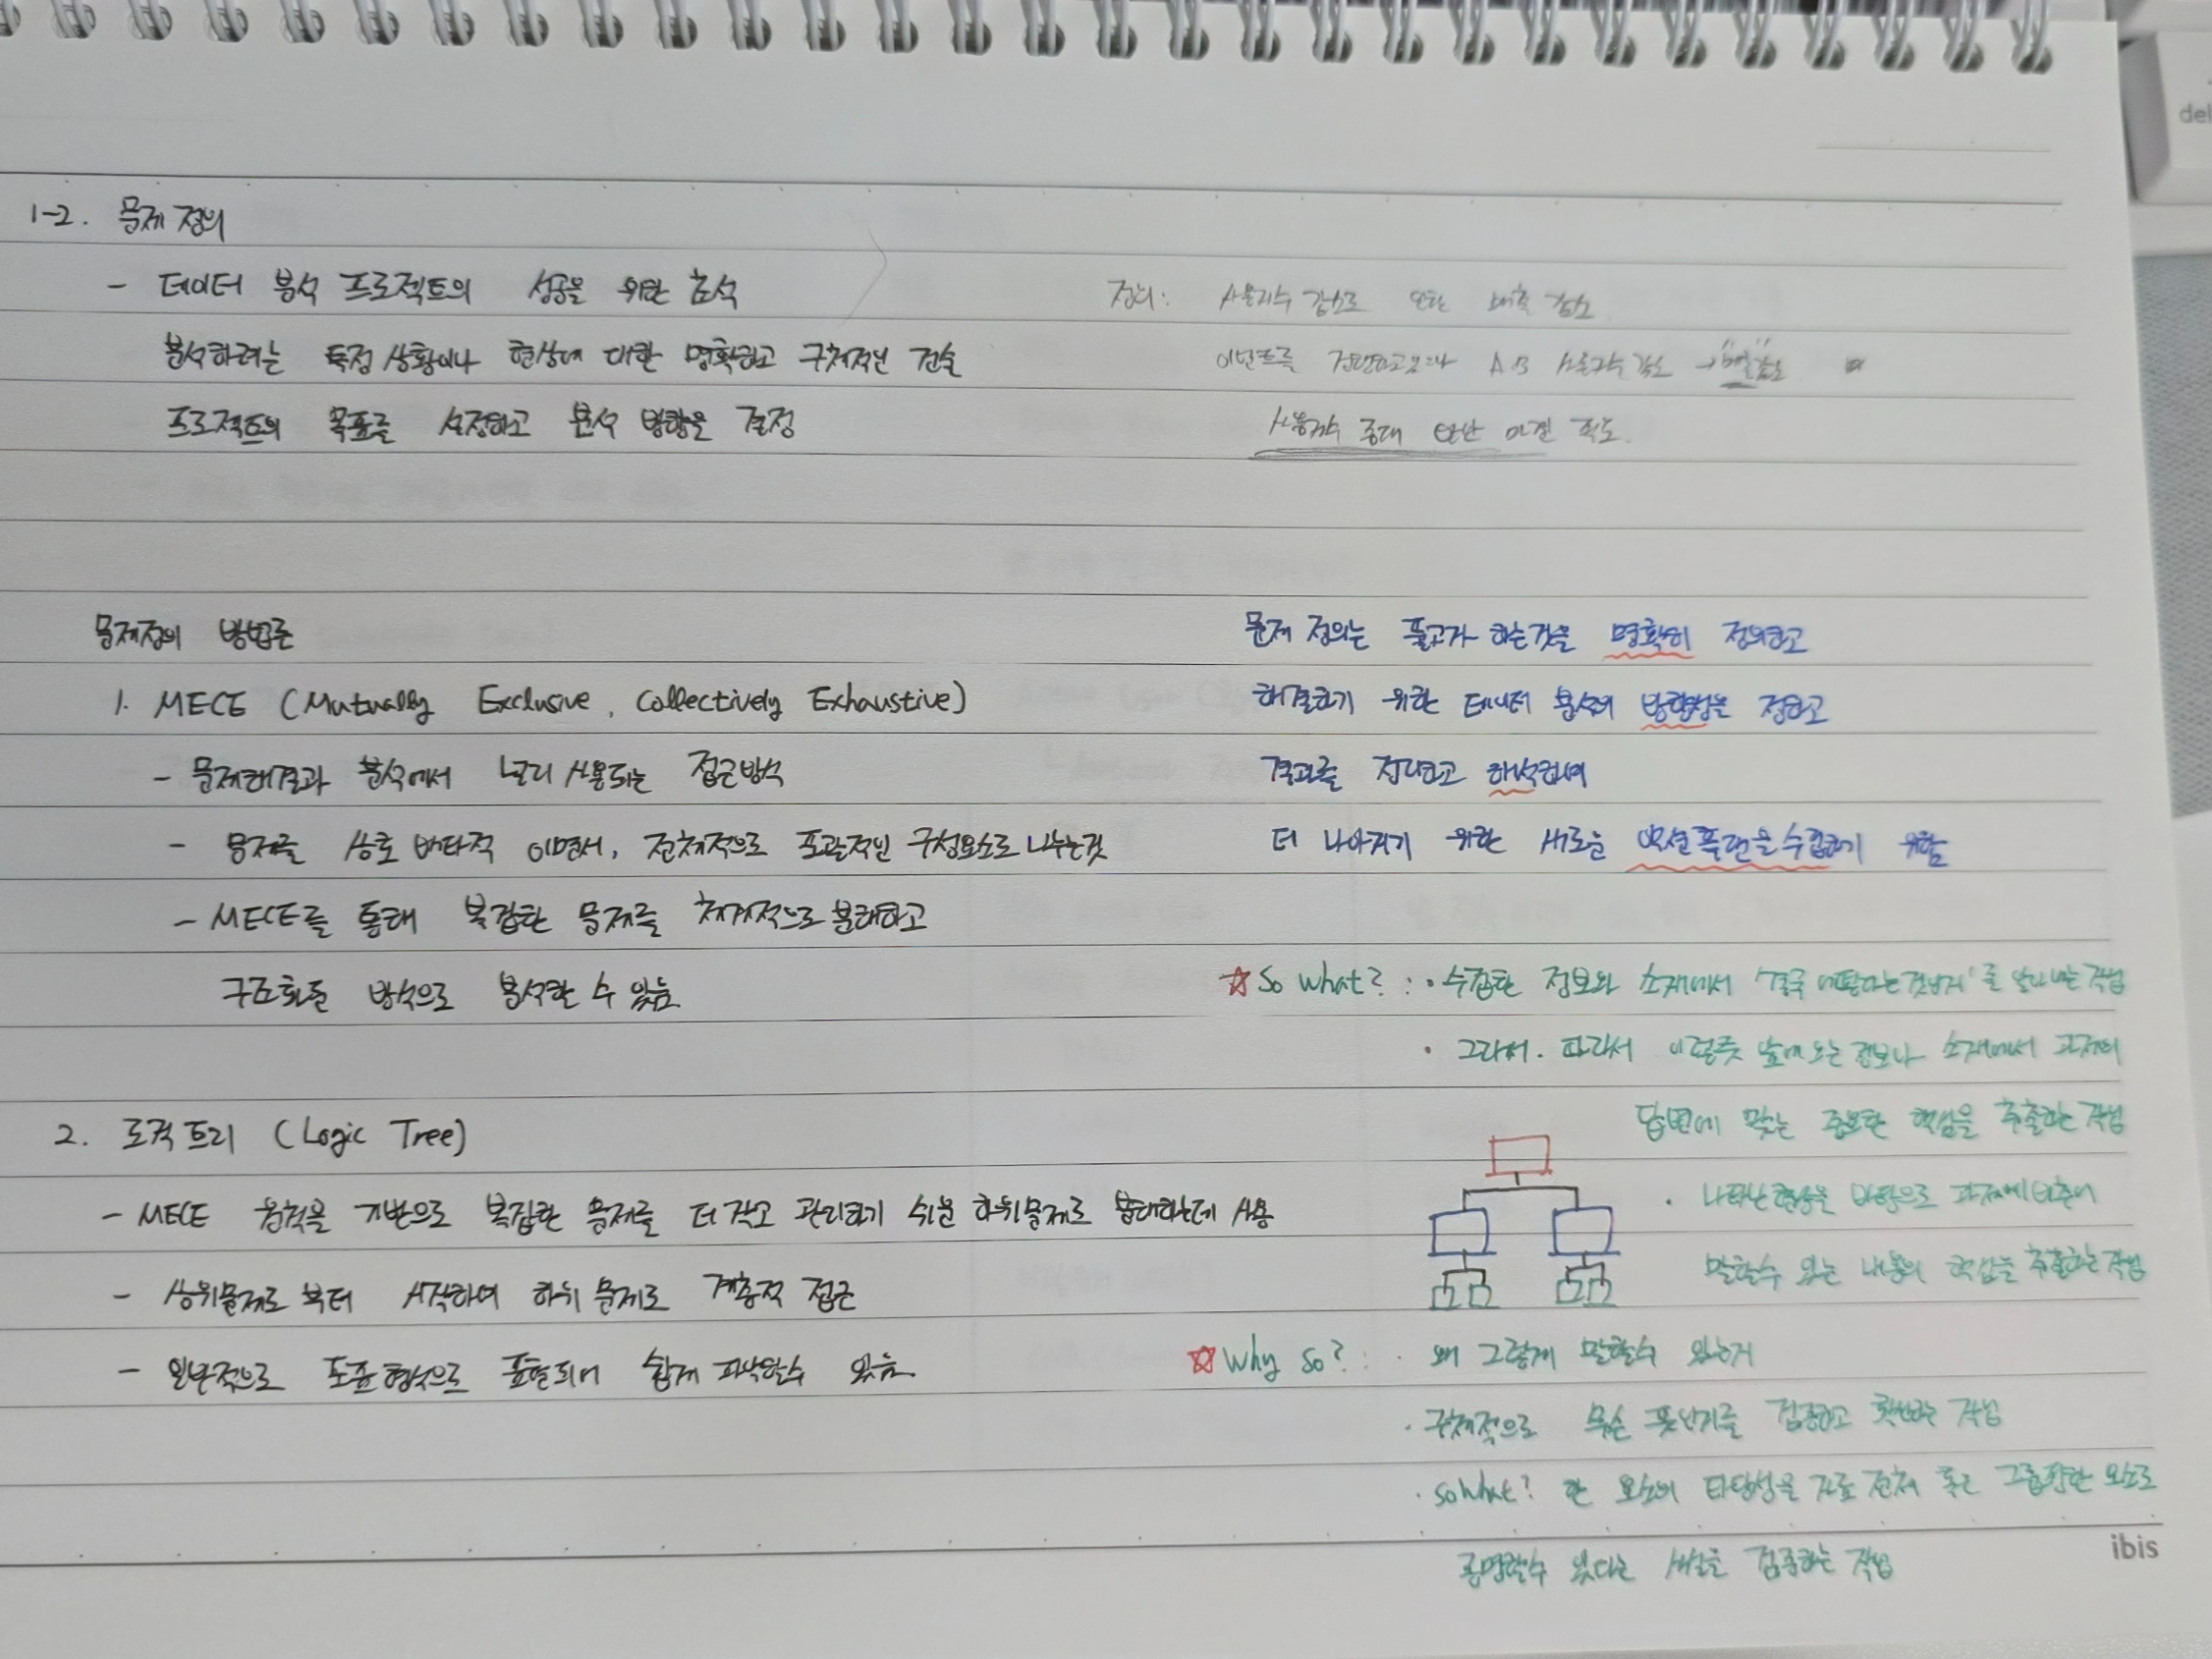 1-2. 문제 정의
- 데이터 분석 프로젝트의 성공을 위한 초석
분석하려는 특정 상황이나 현상에 대한 명확하고 구체적인 진술
프로젝트의 목표를 설정하고 분석 방향을 결정
정의: 사용자수 감소로 인한 매출 감소
이벤트를 진행하고있으나 A B 사용자수 감소 → "매출"감소
사용자수 증대 방안
문제정의 방법론
1. MECE (Mutually Exclusive, Collectively Exhaustive)
- 문제해결과 분석에서 널리 사용되는 접근방식
- 문제를 상호 배타적 이면서, 전체적으로 포괄적인 구성요소로 나누는것
- MECE를 통해 복잡한 문제를 체계적으로 분해하고
구조화된 방식으로 분석할 수 있음
문제 정의는 풀고자 하는것을 명확히 정의하고
해결하기 위한 데이터 분석의 방향성을 정하고
결과를 정리하고 해석하여
더 나아가기 위한 새로운 액션플랜을 수립하기 위함
2. 로직트리 (Logic Tree)
- MECE 원칙을 기반으로 복잡한 문제를 더 작고 관리하기 쉬운 하위문제로 분해하는데 사용
- 상위문제로 부터 시작하여 하위 문제로 계층적 접근
- 일반적으로 도표형식으로 표현되어 쉽게 파악할수 있음
☆ So what? : · 수집한 정보와 소재에서 '결국 어떻다는것인지'를 알아내는 작업
· 그래서. 따라서 이렇듯 앞에 오는 정보나 소재에서 과제의
답변에 맞는 중요한 핵심을 추출하는 작업
· 나타난 현상을 바탕으로 과제에 비추어
말할수 있는 내용의 핵심을 추출하는 작업
☆ Why so? : · 왜 그렇게 말할수 있는지
· 구체적으로 무슨 뜻인지를 검증하고 확인하는 작업
· so what? 한 요소의 타당성을 자료 전체 혹은 그룹핑한 요소로
증명할수 있다는 사실을 검증하는 작업
ibis
del